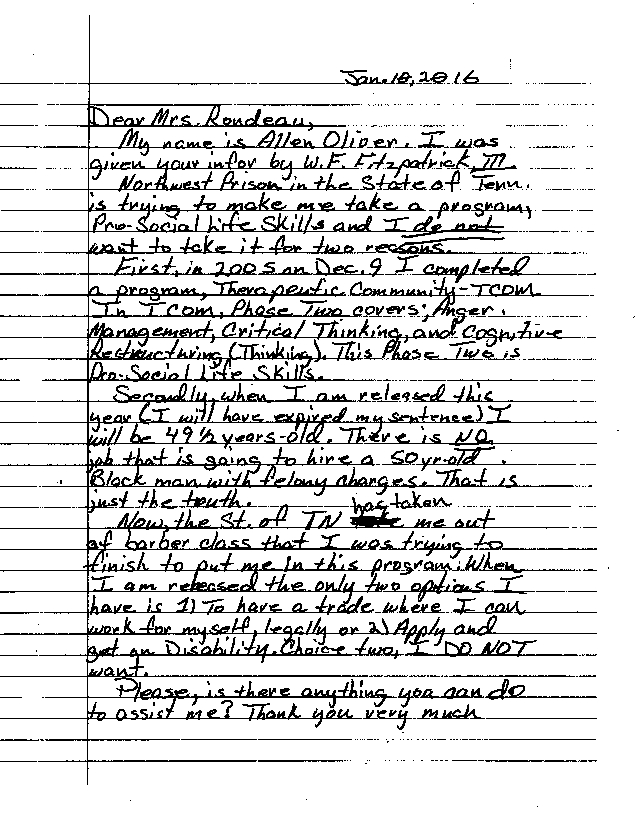 Jan. 10, 2016
Dear Mrs. Rondeau,
My name is Allen Oliver. I was
given your infor by W.F. Fitzpatrick, III.
Northwest Prison in the State of Tenn.
is trying to make me take a program,
Pro-Social Life Skills and I do not
want to take it for two reasons.
First, in 2005 on Dec. 9 I completed
a program, Therapeutic Community-TCOM.
In TCOM, Phase Two covers; Anger
Management, Critical Thinking, and Cognitive
Restructuring (Thinking). This Phase Two is
Pro-Social Life Skills.
Secondly, when I am released this
year (I will have expired my sentence) I
will be 49 1/2 years-old. There is NO
job that is going to hire a 50 yr-old
Black man with felony charges. That is
just the truth.
Now, the St. of TN has taken me out
of barber class that I was trying to
finish to put me in this program. When
I am released the only two options I
have is 1) To have a trade where I can
work for myself, legally or 2) Apply and
get on Disability. Choice two, I DO NOT
want.
Please, is there anything you can do
to assist me? Thank you very much